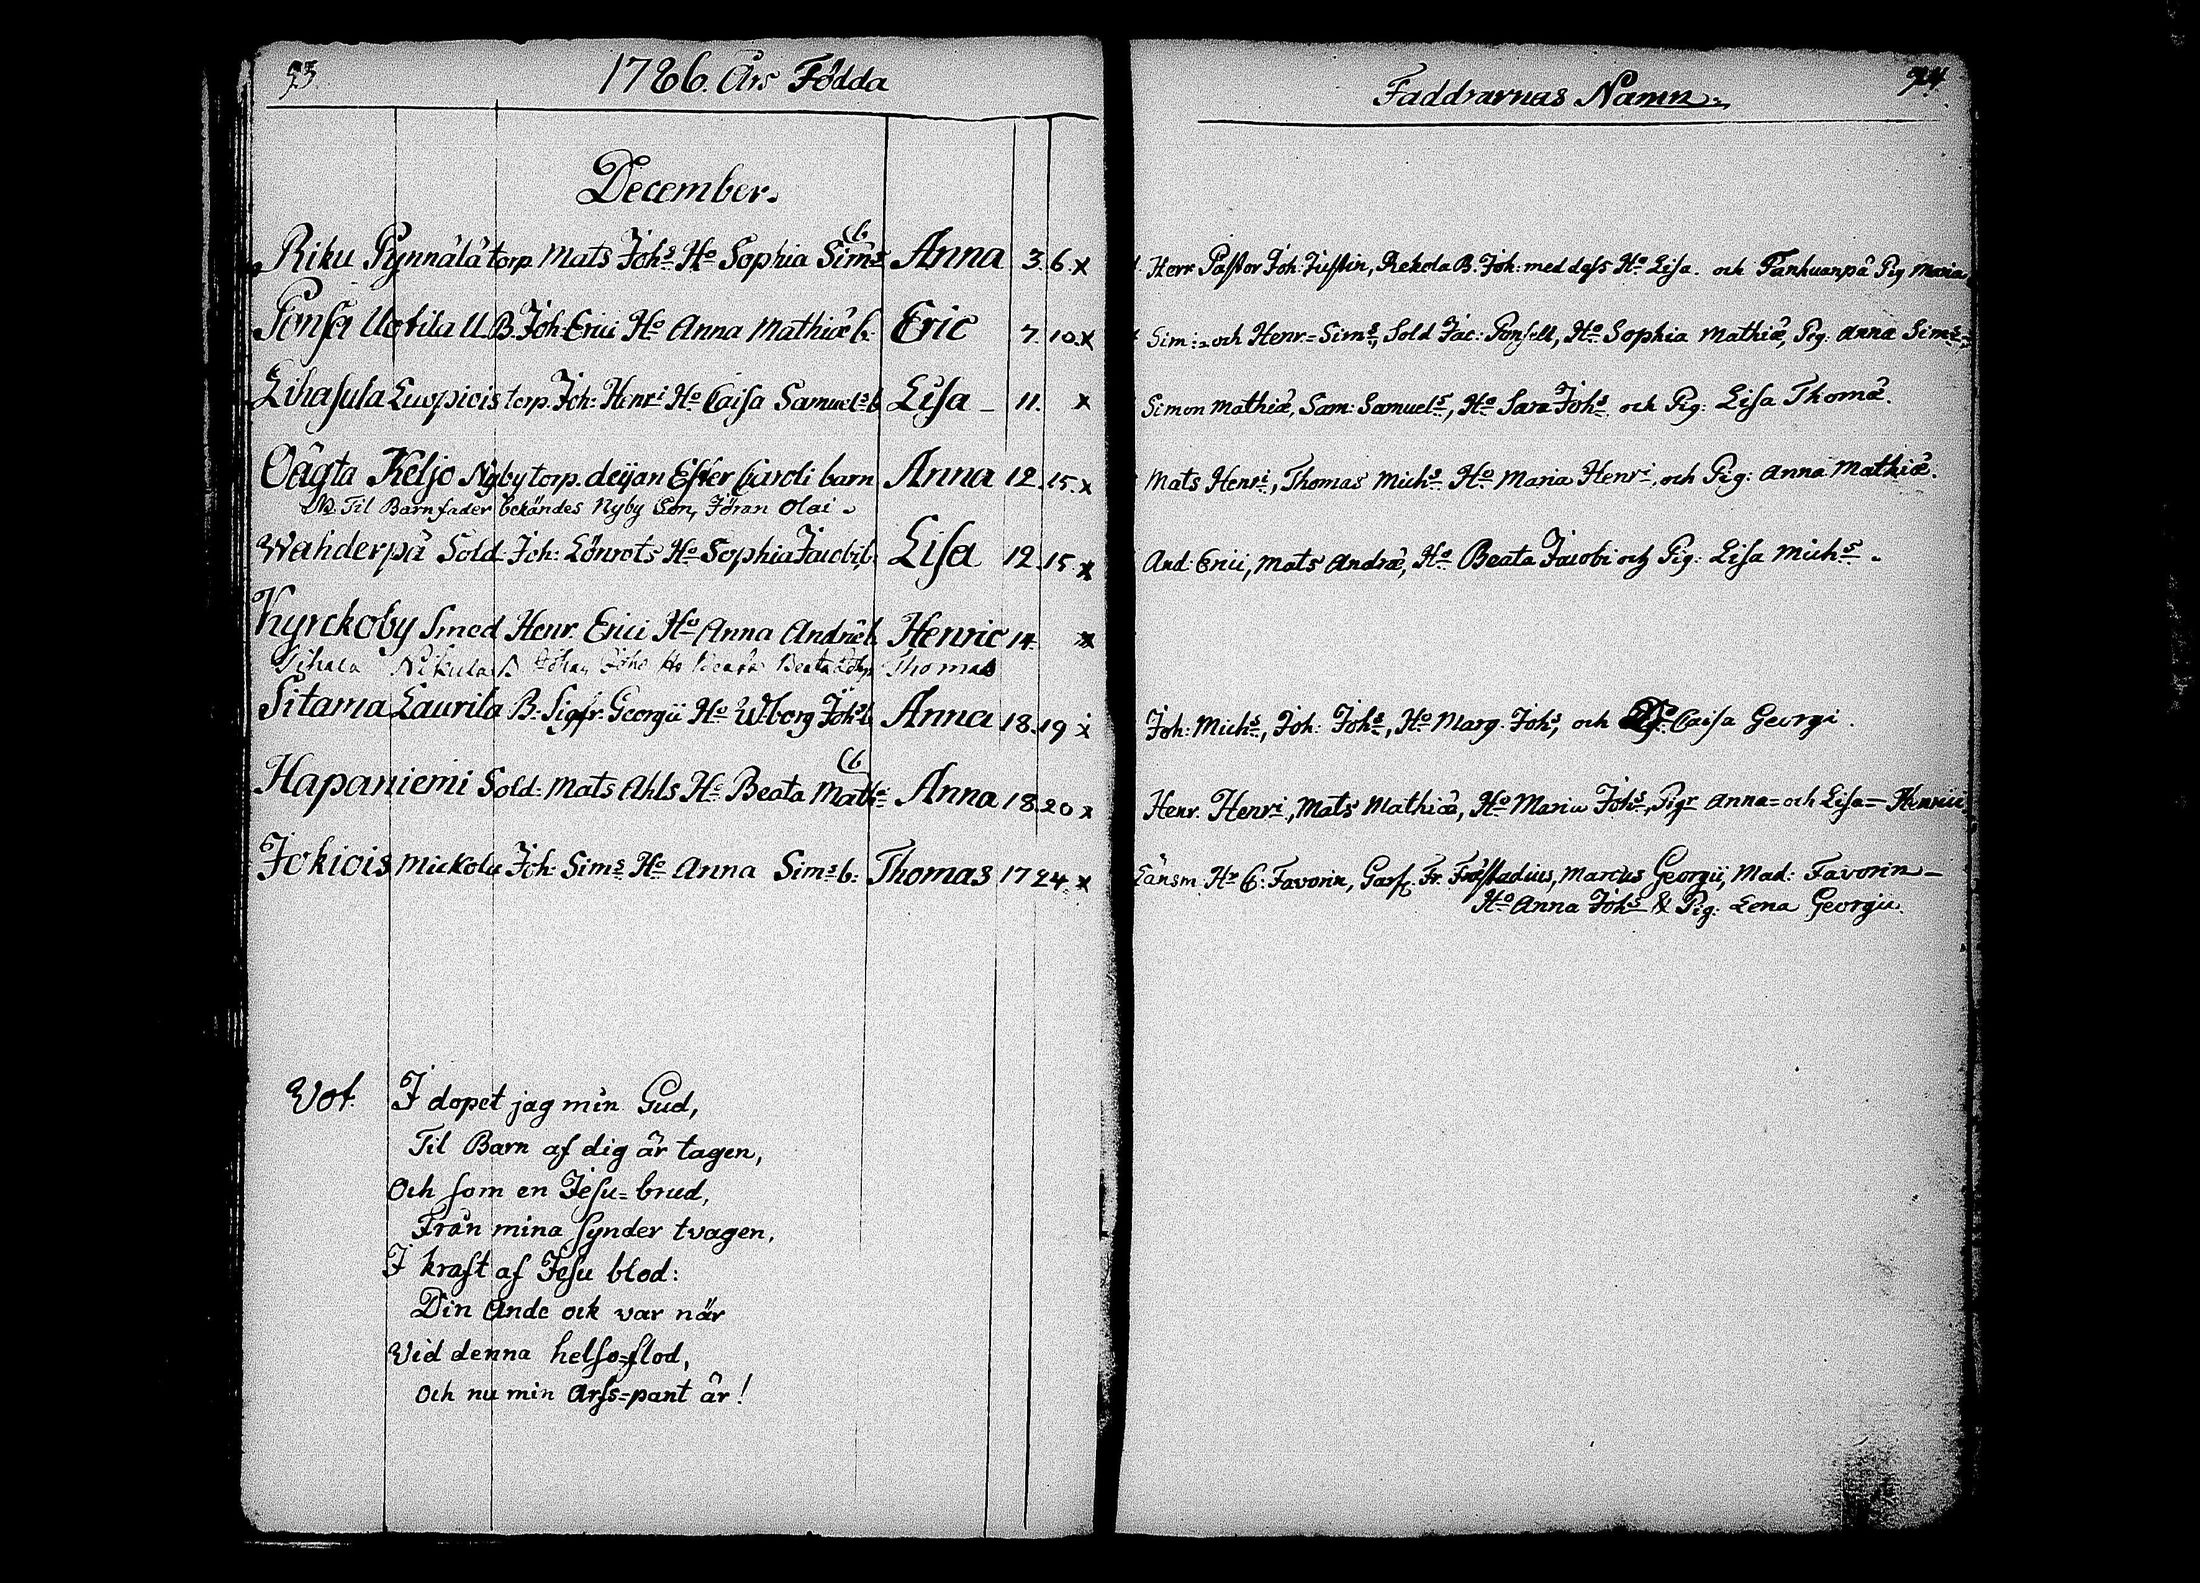 93.
1786. Års Födda
December.
Riku Pynnälä torp. Mats Johs. Ho Sophia Sims. (b. Anna 3. 6. x
Ponsa Uotila U. B. Joh: Erici Ho Anna Mathiæ b. Eric 7. 10. x
Lihasula torp. Joh: Henri Ho Caisa Samuels b. Lisa - 11. x
Keljo Nyby torp. deijan Ester Caroli barn Anna 12. 15. x
NB. Til Barnfader bekändes Nyby Son, Jöran Olai.
Wahderpä Sold. Joh: Lönrots Ho Sophia Jacobi b. Lisa 12. 15. x
Kyrckoby Smed Henr. Erici Ho Anna Andræ b. Henric 14. x
Nikula B Johan Beata Thomas
Sitama Laurila B. Sigfr. Georgii Ho Wborg Johs b. Anna 18. 19 x
Hapaniemi Sold: Mats Ahls Ho Beata Math: (b. Anna 18. 20 x
Jokiois Mickola Joh: Sims. Ho Anna Sims. b: Thomas 17 24. x
Vot. I dopet jag min Gud,
Til Barn af dig är tagen,
Och som en Jesu=brud,
Från mina synder tvagen,
I kraft af Jesu blod:
Din Ande ock var när
Vid denna helso=flod,
Och nu min Arfs=pant är!
94.
Faddrarnas Namn.
Herr Pastor Joh: Justin, Rekola B. Joh: med dess Ho Lisa. och Panhuanpä Pig Maria
Sim:= och Henr.= Sims., Sold Jac: Ponsell, Ho Sophia Mathiæ, Pig: Anna Sims.
Simon Mathiæ, Sam: Samuels., Ho Sara Johs. och Pig: Lisa Thomæ.
Mats Henri, Thomas Michs. Ho Maria Henri, och Pig: Anna Mathiæ.
And: Erici, Mats Andræ, Ho Beata Jacobi och Pig: Lisa Michs.
Joh: Michs., Joh: Johs., Ho Marg. Johs, och Caisa Georgi.
Henr. Henri, Mats Mathiæ, Ho Maria Johs., Pigr Anna= och Lisa= Henrici
Länsm. Hr C: Favorin, Garf. Fr. Marcus Georgii, Mad: Favorin –
Ho Anna Johs & Pig: Lena Georgii.